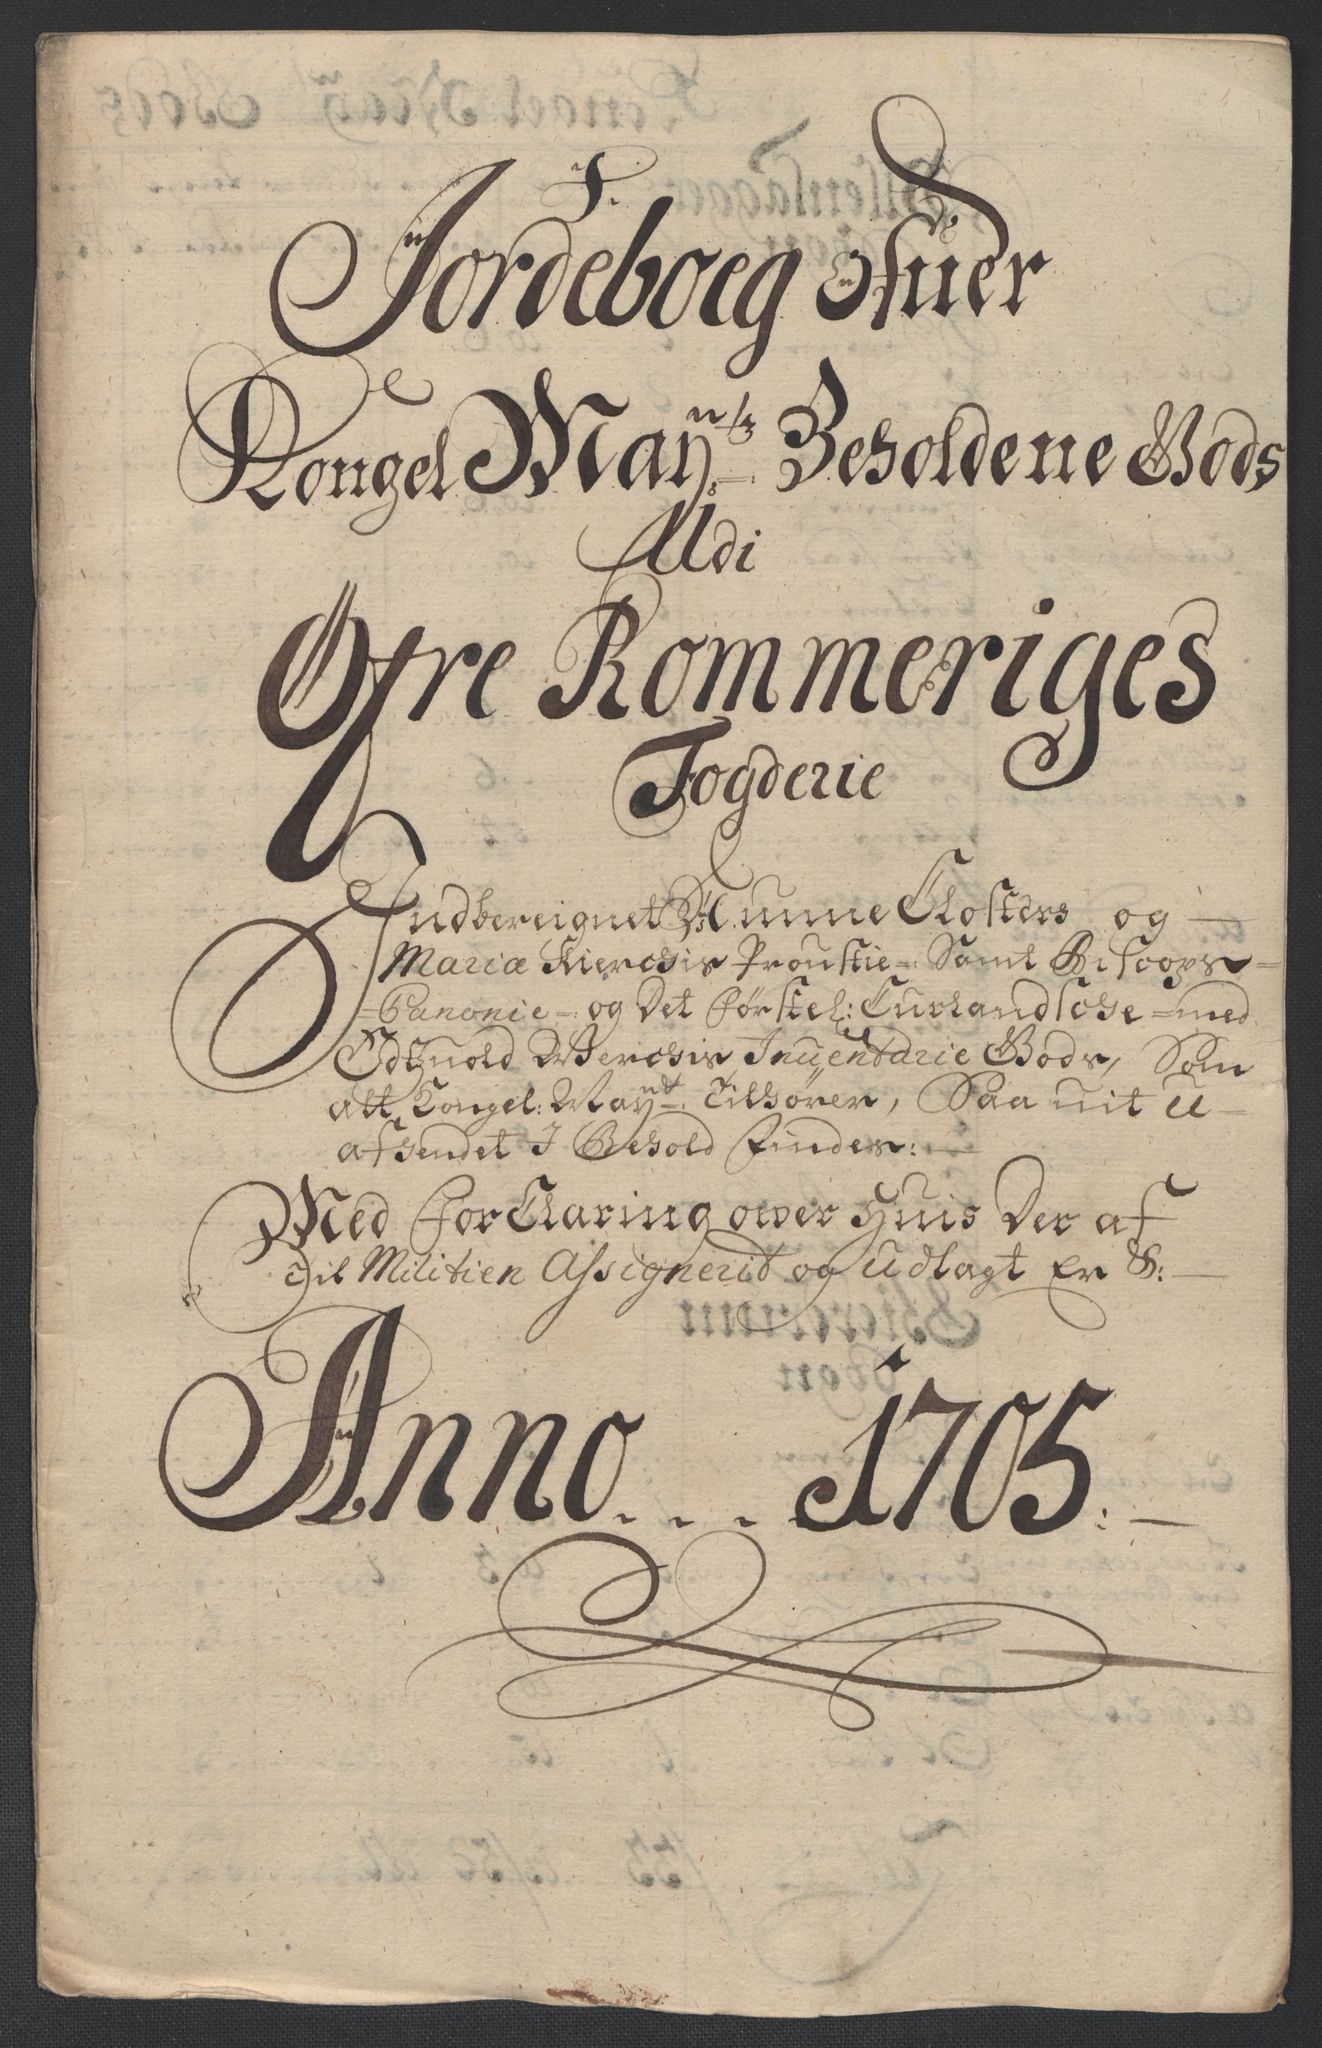 F.
Jordeboeg Ofuer
Kongel Mayⁿᵗˢ Beholdene Gods
Udi
Øfre Rommeriges
Fogderie
Indbereignet Nunne Closters og
Mariæ Kierchis Proustie Samt Biscops
Canonie og Det förstel: Curlandsche med
Edtzuold Kierchis Inuentarie Gods, Som
alt Kongel: Mayᵗ: Tilhører, Saa uit U-
afhendet I Behold Findes:
Med forClaring ower Huis Der af
Til Militien Assignerit og Udlagt Er
Anno . . . . 1705: